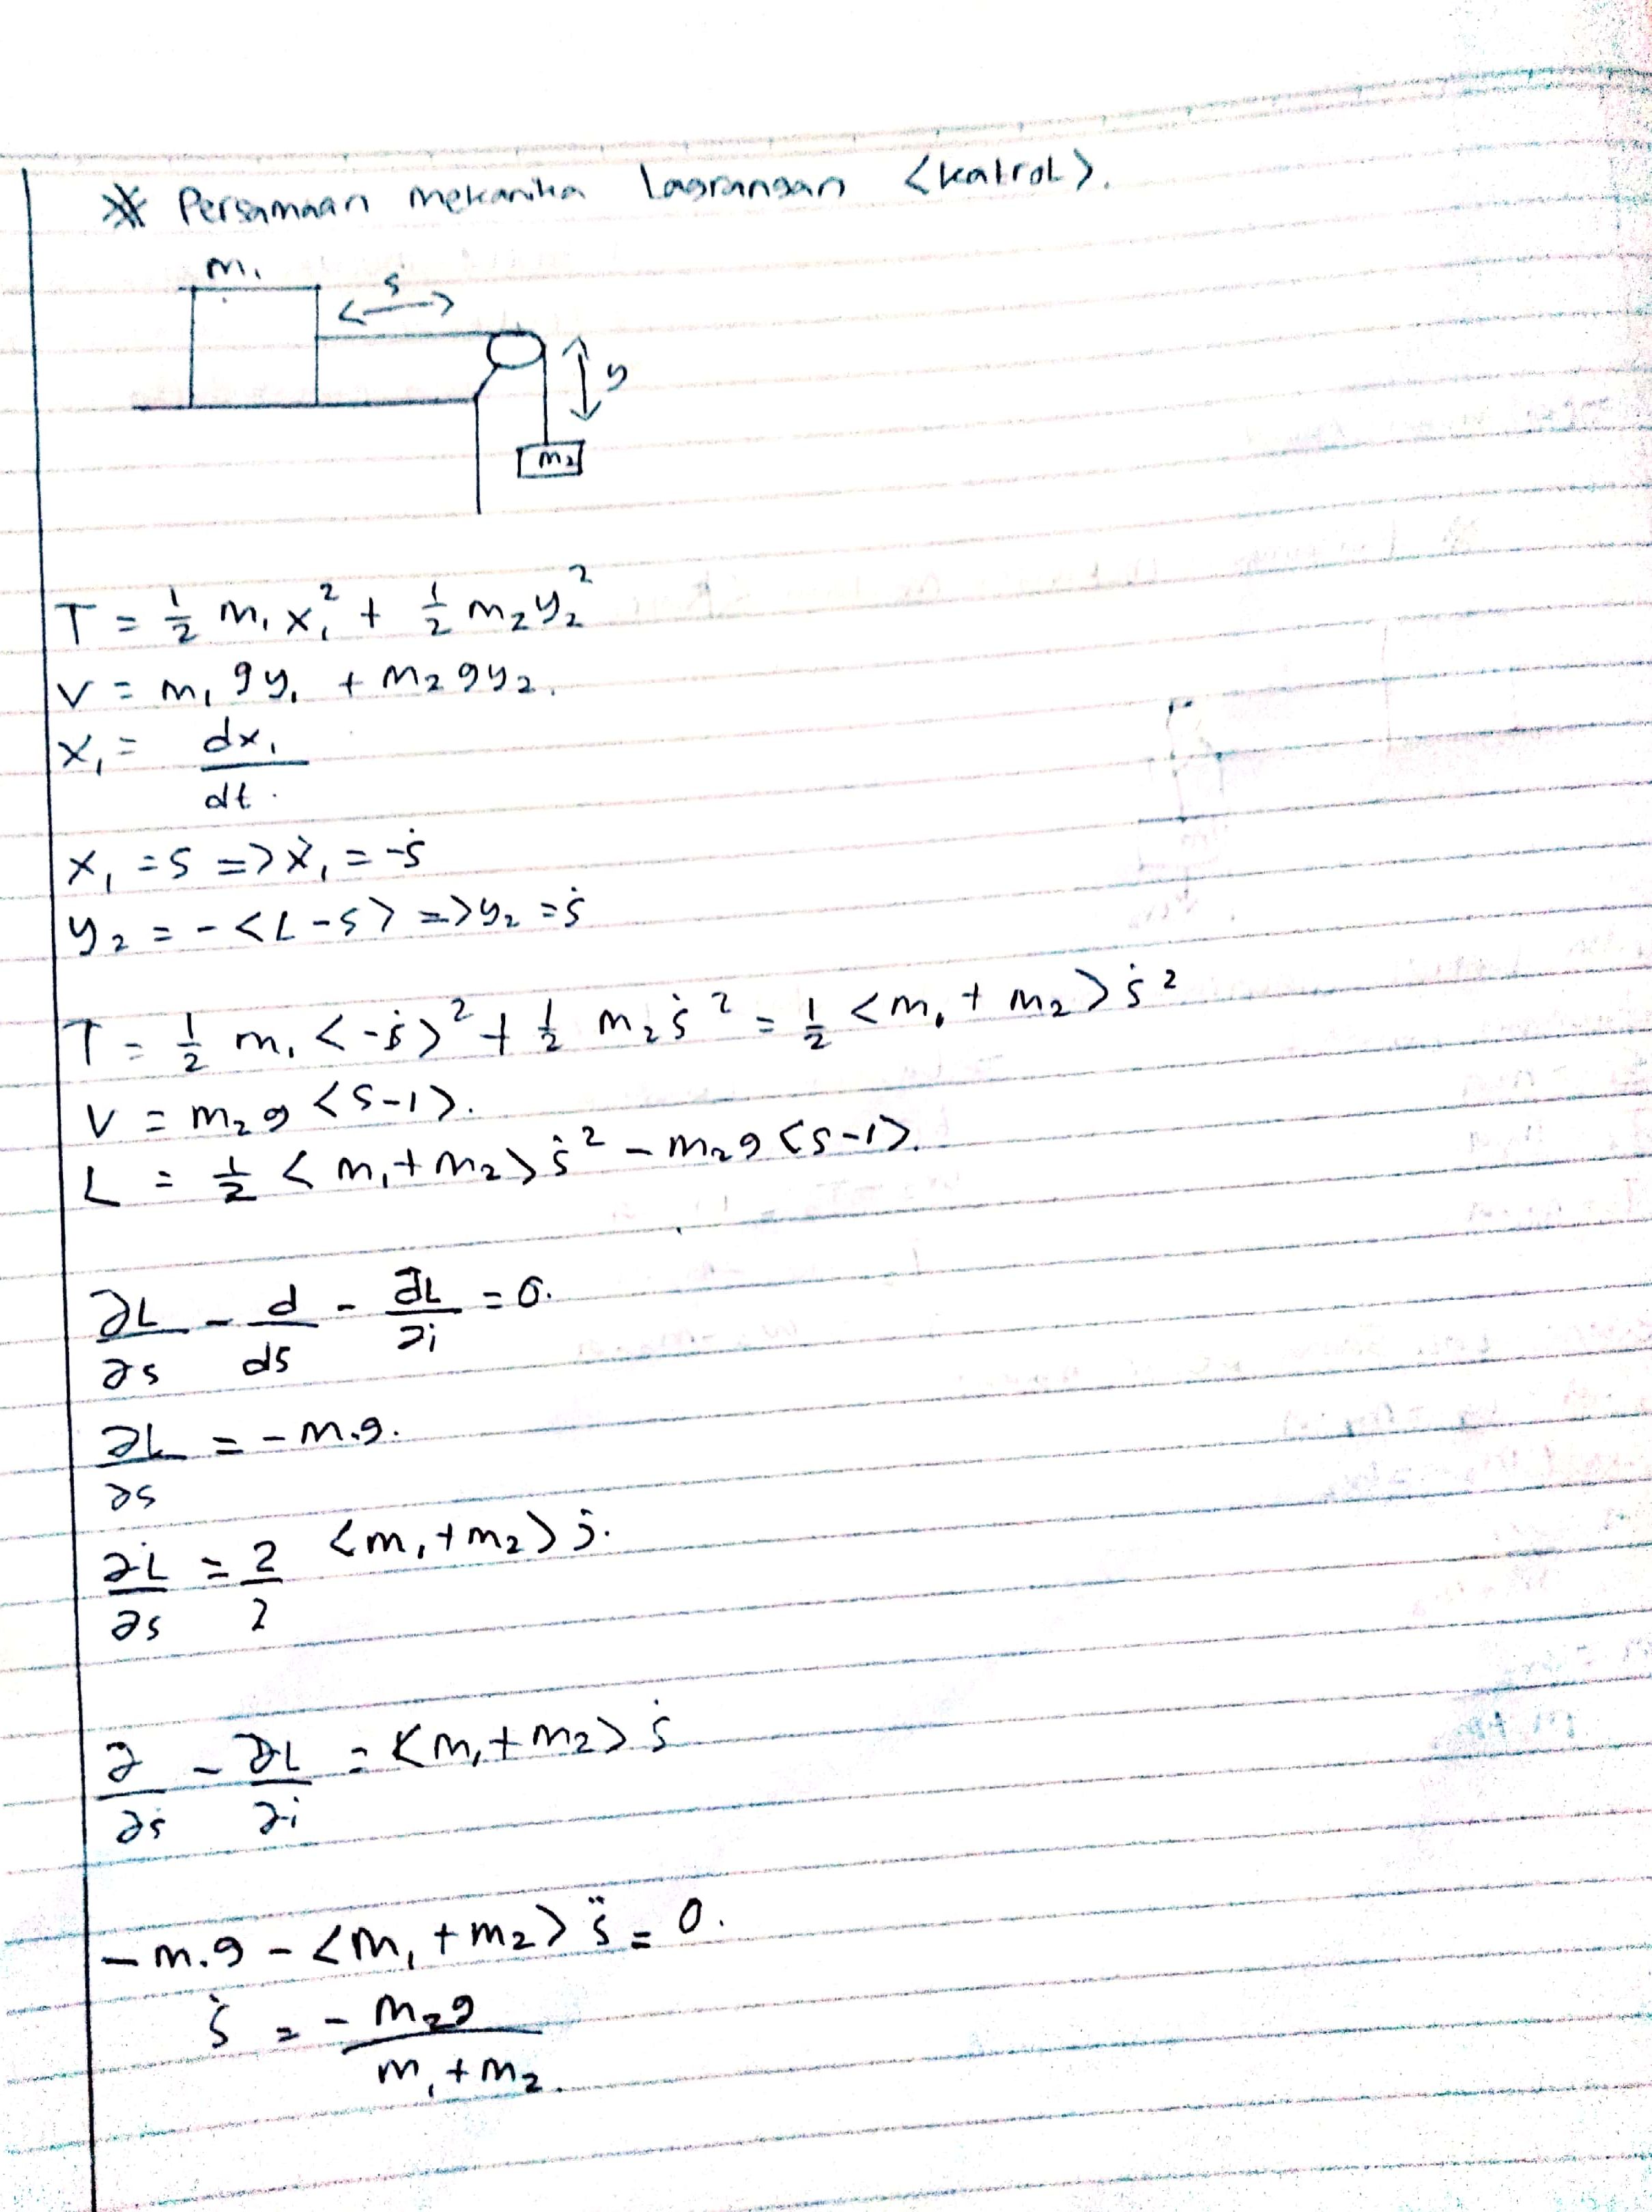 * Persamaan mekanika lagrangan <katrol>.
m₁
s
y
m₂
T = 1/2 m₁x₁² + 1/2 m₂y₂²
V = m₁gy₁ + m₂gy₂.
x₁ = dx₁/dt.
x₁ = s => ẋ₁ = -ṡ
y₂ = - <L-s> => y₂ = ṡ
T = 1/2 m₁ <-ṡ>² + 1/2 m₂ṡ² = 1/2 <m₁ + m₂> ṡ²
V = m₂g <s-1>.
L = 1/2 <m₁+m₂> ṡ² - m₂g <s-1>.
∂L/∂s - d/ds - ∂L/∂i = 0.
∂L/∂s = - m.g.
∂L/∂s = 2/2 <m₁+m₂> ṡ.
∂/∂ṡ - ∂L/∂i = <m₁+m₂> ṡ
- m.g - <m₁ + m₂> s̈ = 0.
ṡ = - m₂g/m₁+m₂.